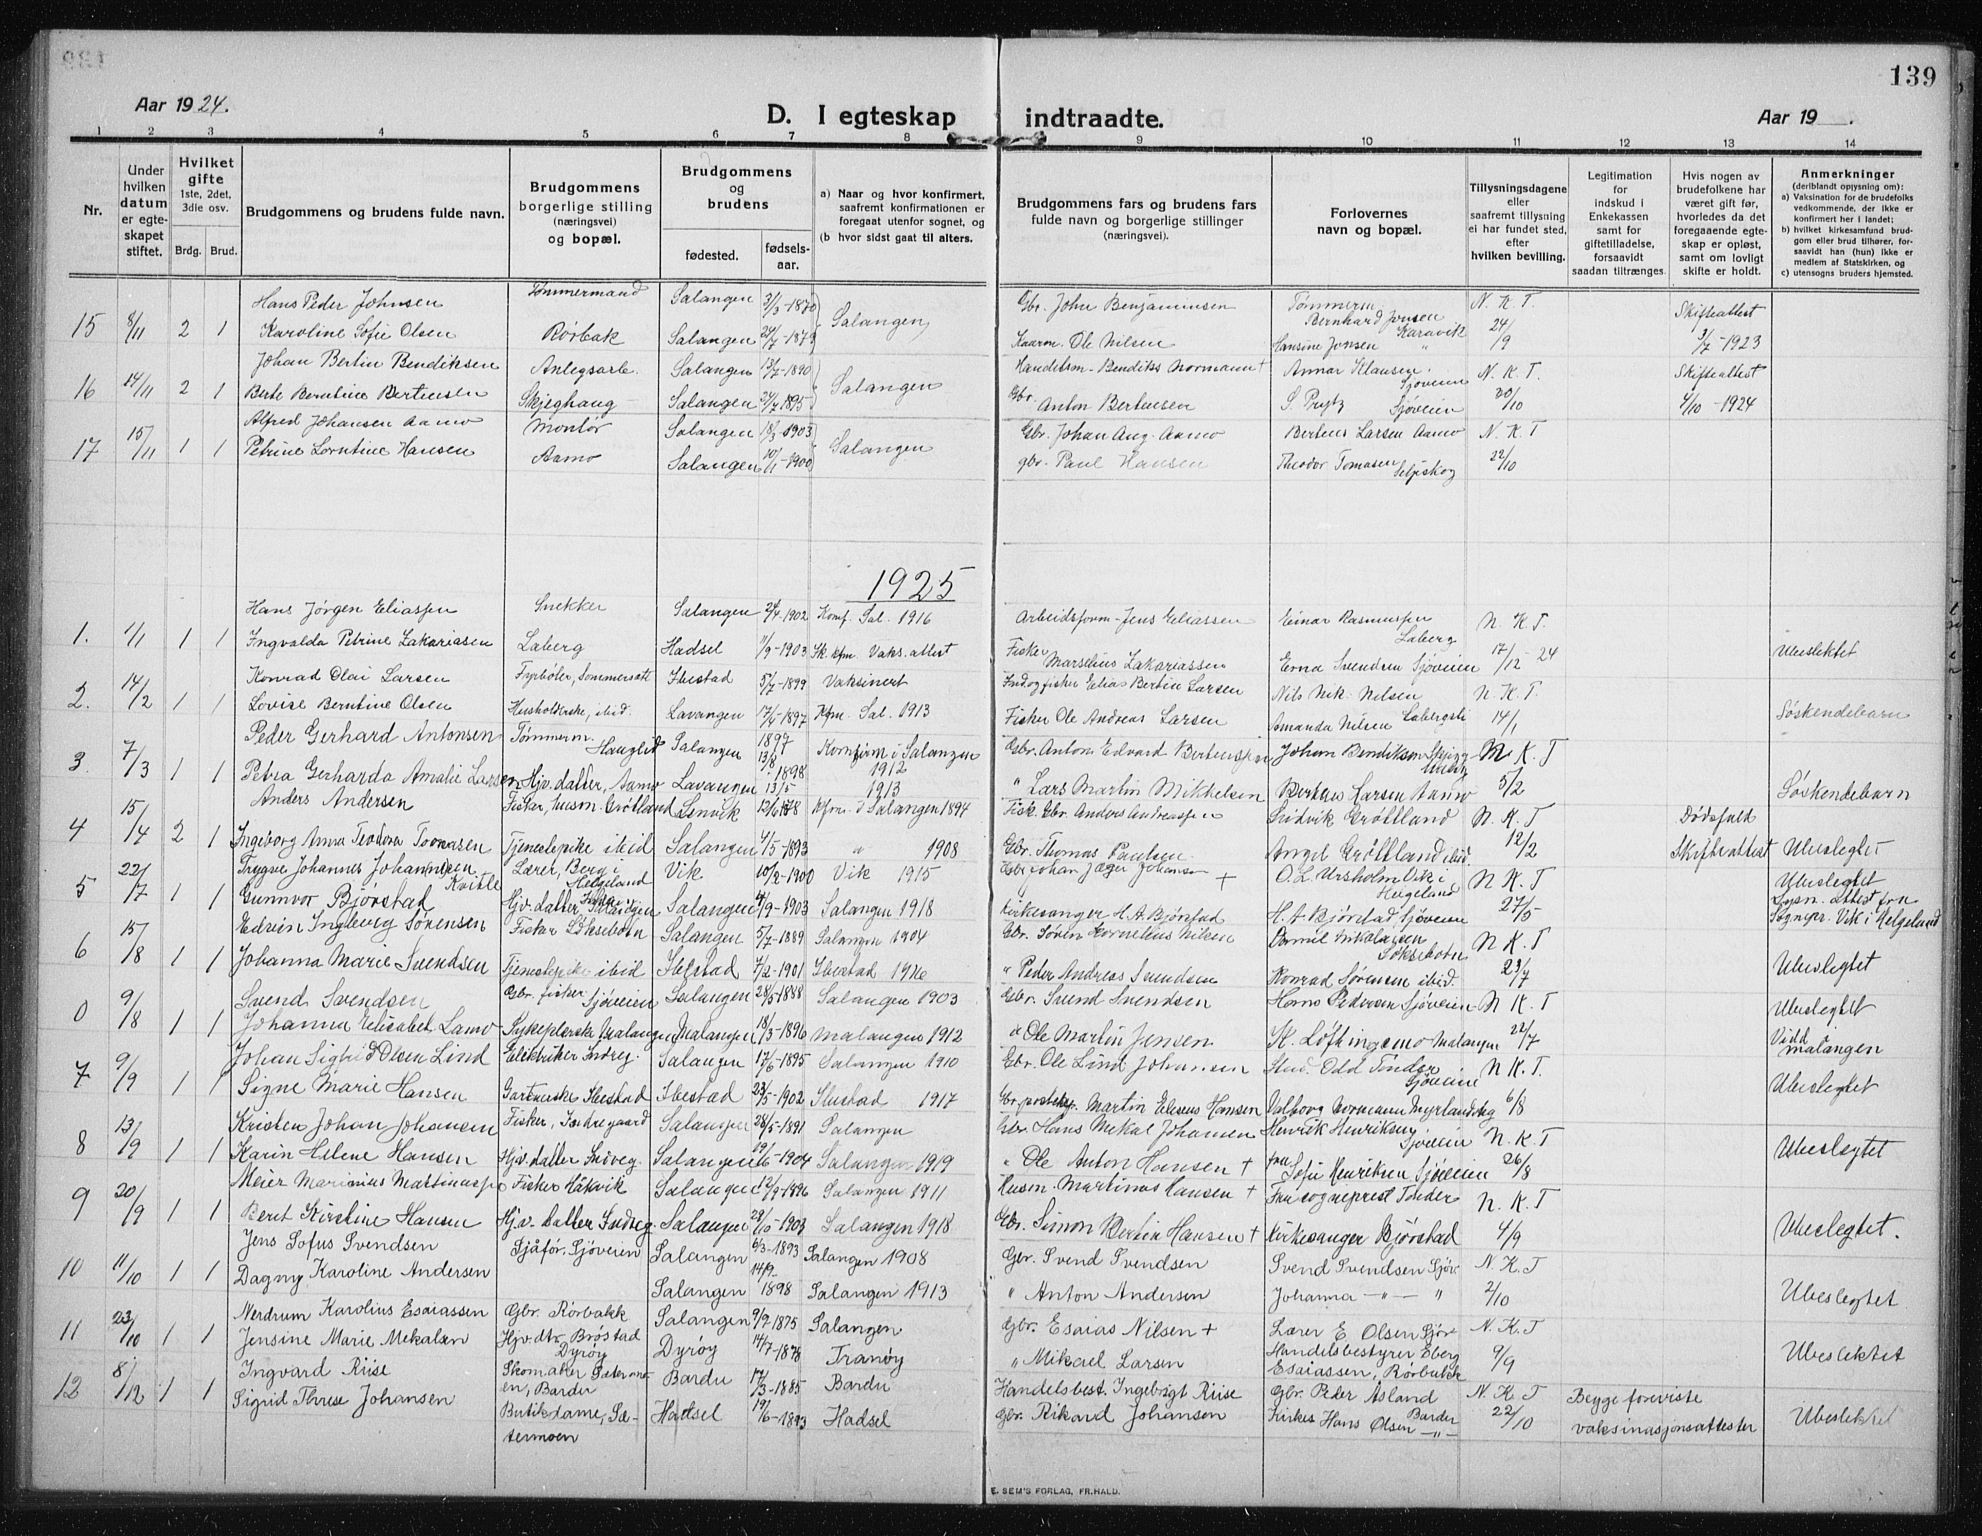 139
Aar 1924.
D. I egteskap indtraadte.
Aar 19 .
1 2 3 4 5 6 7 8 9 10 11 12 13 14
Nr.
Under hvilken datum er egteskapet stiftet.
Hvilket gifte 1ste, 2det, 3die osv.
Brdg. Brud.
Brudgommens og brudens fulde navn.
Brudgommens borgerlige stilling (næringsvei) og bopæl.
Brudgommens og brudens
fødested. fødselsaar.
a) Naar og hvor konfirmert, saafremt konfirmationen er foregaat utenfor sognet, og
(b hvor sidst gaat til alters.
Brudgommens fars og brudens fars fulde navn og borgerlige stillinger (næringsvei).
Forlovernes navn og bopæl.
Tillysningsdagene eller saafremt tillysning ei har fundet sted, efter hvilken bevilling.
Legitimation for indskud i Enkekassen samt for giftetilladelse, forsaavidt saadan tiltrænges.
Hvis nogen av brudefolkene har været gift før, hvorledes da det foregaaende egteskap er opløst, samt om lovligt skifte er holdt.
Anmerkninger (deriblandt opjysning om):
a) Vaksination for de brudefolks vedkommende, der ikke er konfirmert her i landet;
b) hvilket kirkesamfund brudgom eller brud tilhører, forsaavidt han (hun) ikke er medlem af Statskirken, og
c) utensogns bruders hjemsted.
Hans Peder Johnsen Tømmermand Salangen 3/3-1870 Gbr. John Benjaminsen Tømmerm. Bernhard Jensen N. K. T. Skifteattest
15 8/11 2 1 Karoline Sofie Olsen Rørbak Salangen Salangen Kaarm. Ole Nilsen Hansine Jensen Karavik 24/9 3/7-1923
Johan Bertin Bendiksen Anlegsarb. Salangen 13/7-1890 Handelsm. Bendiks Normann + Annar Klausen Sjøveien N. K. T. Skifteattest
16 14/11 2 1 Berntine Bertinsen Skjeghaug Salangen 24/7-1895 Salangen Gbr. Anton Bertinsen S. Prytz Sjøveien 30/10 4/10-1924
Alfred Johansen Aamo Montør Salangen 18/3-1903 Gbr. Johan Aug. Aamo Bertins Larsen Aamo N. K. T
17 15/11 1 1 Petrine Lorntine Hansen Aamo Salangen 10/1-1900 Salangen gbr. Paul Hansen Theodor Tomasen Seljeskog 22/10
1925
Hans Jørgen Eliassen Snekker Salangen 24/4 1902 Konf. Sal. 1916 Arbeidsform. Jens Eliassen Einar Rasmussen Laberg N. K. T.
1. 1/1 1 1 Ingvalda Petrine Zakariasen Laberg Hadsel 11/9-1903 Sk. kfm. Vaks. attest Fisker Marselius Zakariassen Erna Svendsen Sjøveien 17/12-24 Ubeslektet
Konrad Olai Larsen Fyrbøter, Sommersæt Ibestad 5/7-1899 Vaksinert Ind. og fisker Elias Bertin Larsen Nils Nik. Nilsen N. K. T.
2. 14/2 1 1 Lovise Berntine Olsen Husholderske, ibid. Lavangen 17/6-1897 Kfm. Sal. 1913 Fisker Ole Andreas Larsen Amanda Nilsen Labergsli 14/1 Søskendebarn
Peder Gerhard Antonsen Tømmerm. Hauglid Salangen 1897 13/8 Konfirm i Salangen 1912 Gbr. Anton Edvard Bertinsen Johan Bendiksen N. K. T
3 7/3 1 1 Petra Gerharda Amalie Larsen Hjv. datter, Aamo Lavangen 1898 13/5 1913 " Lars Martin Mikkelsen Bertens Larsen Aamo 5/2 Søskendebarn
Anders Andersen Fisker, husm. Grøtland Lenvik 12/6 Kfm. i Salangen 1894 Fisk. Gbr. Anders Andreassen Ludvik Grøttland N. K. T. Dødsfald
4 15/4 2 1 Ingeborg Anna Teodora Tomasen Tjenestepike ibid Salangen 4/5-1893 " 1908 Gbr. Thomas Paulsen Angel Grøttland ibid. 12/2 Skifteattest Ubeslegtet
Trygve Johannes Johannesen Kvitle Lærer, Berg i Helgeland Vik 10/2-1900 Vik 1915 Gbr. Johan Jæger Johansen + O. L. Ursholm Vik i Helgeland N K. T Ubeslegtet
5 22/7 1 1 Gunnvor Bjørstad Hjv. datter Salangen Salangen 4/9-1903 Salangen 1918 Kirkesanger H. A. Bjørstad H. A. Bjørstad Sjøveien 27/5 Lysn. attest fra Sogner. Vik i Helgeland
Edvin Ingberg Sørensen Fisker Løksebotn Salangen 5/7-1889 Salangen 1904 Gbr. Søren Kornelius Nilsen Nikolaisen Løksebotn N K. T
6 15/8 1 1 Johanna Marie Svendsen Tjenestepike ibid Ibestad 7/2-1901 Ibestad 1916 " Peder Andreas Svendsen Konrad Sørensen ibid. 23/7 Ubeslegtet
Svend Svendsen Gbr. fisker Sjøveien Salangen 28/5-1888 Salangen 1903 Gbr. Svend Svendsen Hans Pedersen Sjøveien N K. T Ubeslegtet
0 9/8 1 1 Johanna Elisabet Lamo Sykepleierske Malangen Malangen 18/3-1896 Malangen 1912 " Ole Martin Jensen K. Løfthingsmo Malangen 22/7 Vidd malangen
Johan Sigfrid Olsen Lind Elektriker Indreg. Salangen 17/6-1895 Salangen 1910 Gbr. Ole Lind Johansen Stud. Odd Tönder Sjøveien N K. T.
7 9/9 1 1 Signe Marie Hansen Gartnerske Ibestad Ibestad 23/5-1902 Ibestad 1917 Martin Eliseus Hansen Valborg Normann Myrlandshg 6/8 Ubeslegtet
Kristen Johan Johansen Fisker, Indregaard Salangen 28/5-1891 Salangen Gbr. Hans Mekal Johansen Henrik Henriksen Sjøveien N. K. T
8 13/9 1 1 Karin Helene Hansen Hjv. datter Indreg. Salangen 19/6-1904 Salangen 1919 " Ole Anton Hansen + fru Sofie Henriksen Sjøveien 26/8 Ubeslegtet
Meier Marianius Martinussen Fisker Håkvik Salangen 12/9-1896 Salangen 1911 Husm. Martinus Hansen + Fru sogneprest Tönder N. K. T
9 20/9 1 1 Beret Kirstine Hansen Hjv. datter Indreg. Salangen 28/10-1903 Salangen 1918 Gbr. Simon Bertin Hansen + Kirkesanger Bjørstad 4/9 Ubeslegtet.
Jens Sofus Svendsen Sjåfør. Sjøveien Salangen 6/3-1893 Salangen 1908 Gbr. Svend Svendsen Svend Svendsen Sjøv. N. K. T
10 11/10 1 1 Dagny Karoline Andersen Salangen 14/9-1898 Salangen 1913 " Anton Andersen Johanna -"- " 2/10 Ubeslegtet
Nerdrum Karolius Esaiassen Gbr. Rørbakk Salangen 9/9-1875 Salangen Gbr. Esaias Nilsen + Lærer E. Olsen Sjøv. N. K. T
11 23/10 1 1 Jensine Marie Mekalsen Hjv. dtr. Brøstad Dyrøy Dyrøy 14/7-1878 Tranøy " Mikael Larsen Handelsbestyrer Eberg Esaiassen, Rørbakk 9/9 Ubeslektet
Ingvard Riise Skomaker Sætermoen, Bardu Bardu 17/3-1885 Bardu Handelsbest. Ingebrigt Riise Gbr. Peder Åsland N. K. T Begge foreviste
12 8/12 1 1 Sigrid Threse Johansen Butikdame, Sætermoen Hadsel 19/6-1893 Hadsel Gbr. Rikard Johansen Kirkes Hans Olsen Bardu -"- 22/10 vaksinasjonsattester Ubeslektet
E. SEM'S FORLAG, FR.HALD.